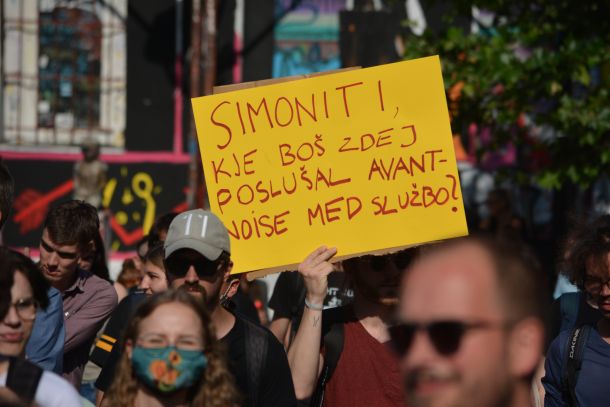 SIMONITI,
KJE BOŠ ZDEJ
POSLUŠAL AVANT-
NOISE MED SLUŽBO?